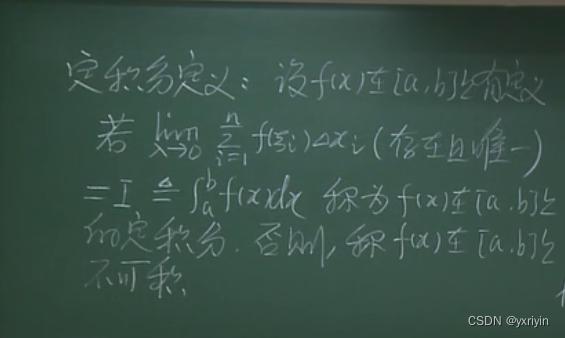 定积分定义：设f(x)在[a,b]上有定义
若 lim λ→0 Σ i=1 n f(ξi)Δxi (存在且唯一)
= I ≜ ∫a b f(x)dx 称为f(x)在[a,b]上
的定积分. 否则,称f(x)在[a,b]上
不可积
CSDN @yxriyin